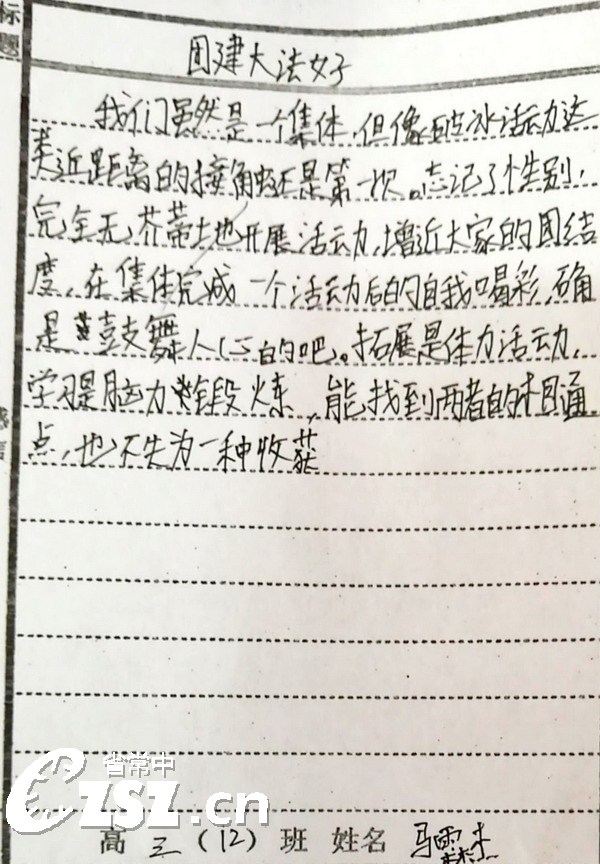 标题
团建大法好
我们虽然是一个集体,但像破冰活动这
类近距离的接触还是第一次。忘记了性别,
完全无芥蒂地开展活动,增近大家的团结
度,在集体完成一个活动后的自我喝彩,确
是鼓舞人心的吧。拓展是体力活动,
学习是脑力锻炼,能找到两者的相通
点,也不失为一种收获
感言
省常中
CZSZ.cn
高三(12)班 姓名